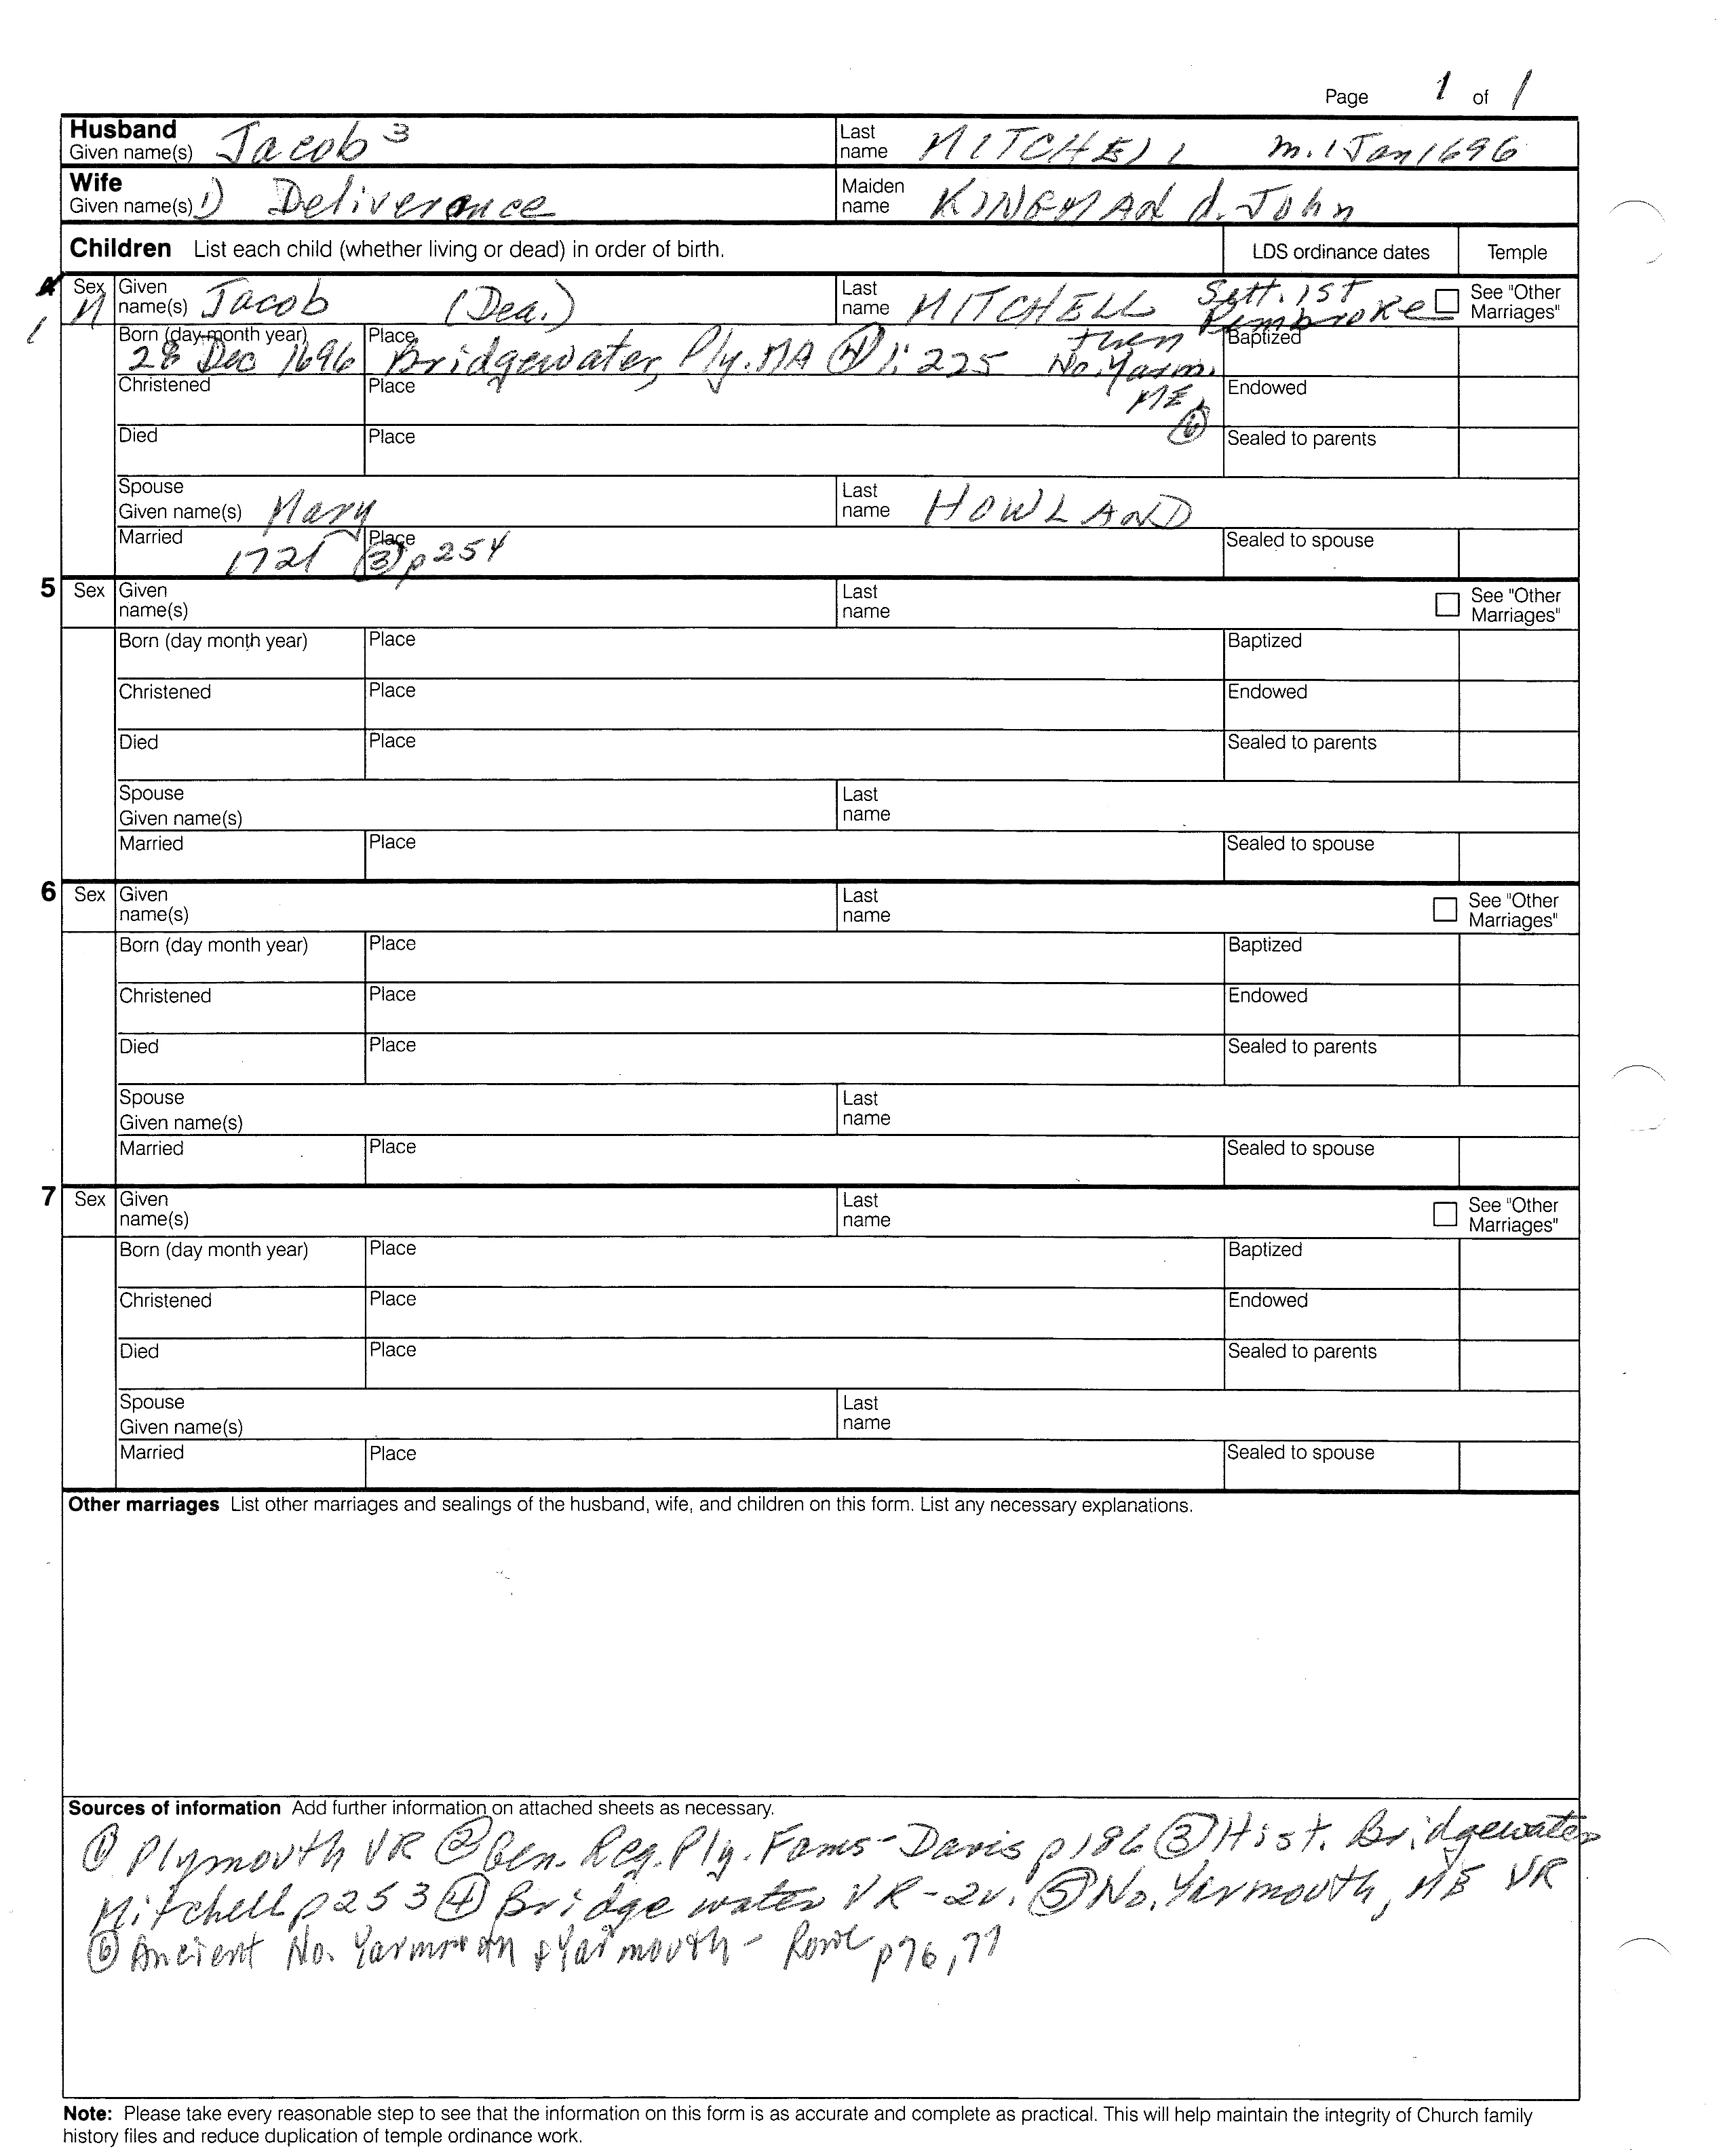 Page 1 of 1
Husband Given name(s) Jacob 3 Last name MITCHELL m. 1 Jan 1696
Wife Given name(s) 1) Deliverance Maiden name KINGMAN d. John
Children List each child (whether living or dead) in order of birth. LDS ordinance dates Temple
1 Sex M Given name(s) Jacob (Dea.) Last name MITCHELL Sett. 1st Pembroke See "Other Marriages"
then No. Yarm. ME 6
Born (day month year) 28 Dec 1696 Place Bridgewater, Ply. MA 4 1:225 Baptized
Christened Place Endowed
Died Place Sealed to parents
Spouse Given name(s) Mary Last name HOWLAND
Married 1721 Place 3 p254 Sealed to spouse
5 Sex Given name(s) Last name See "Other Marriages"
Born (day month year) Place Baptized
Christened Place Endowed
Died Place Sealed to parents
Spouse Given name(s) Last name
Married Place Sealed to spouse
6 Sex Given name(s) Last name See "Other Marriages"
Born (day month year) Place Baptized
Christened Place Endowed
Died Place Sealed to parents
Spouse Given name(s) Last name
Married Place Sealed to spouse
7 Sex Given name(s) Last name See "Other Marriages"
Born (day month year) Place Baptized
Christened Place Endowed
Died Place Sealed to parents
Spouse Given name(s) Last name
Married Place Sealed to spouse
Other marriages List other marriages and sealings of the husband, wife, and children on this form. List any necessary explanations.
Sources of information Add further information on attached sheets as necessary.
① Plymouth VR ② Gen. Reg. Ply. Fams - Davis p186 ③ Hist. Bridgewater
Mitchell p253 ④ Bridgewater VR - 2v. ⑤ No. Yarmouth, ME VR
⑥ Ancient No. Yarmouth & Yarmouth - Rowe p76,77
Note: Please take every reasonable step to see that the information on this form is as accurate and complete as practical. This will help maintain the integrity of Church family
history files and reduce duplication of temple ordinance work.